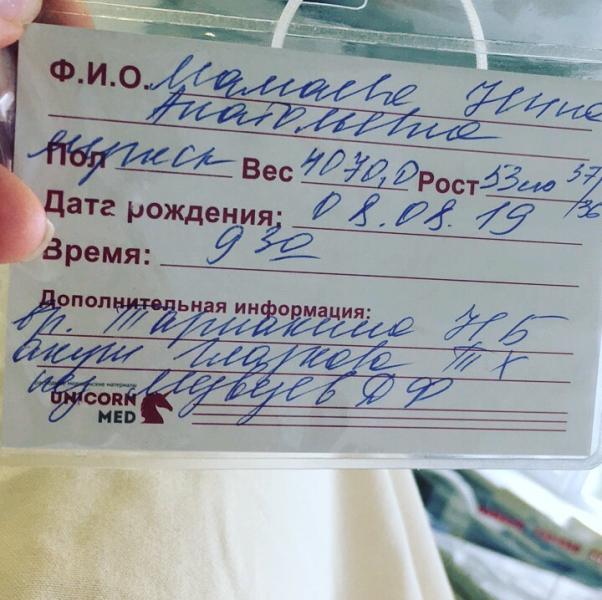 Ф.И.О. Мамаева Нина
Анатольевна
Пол мужск Вес 4070,0 Рост 53см 37/
/36
Дата рождения: 08.08.19
Время: 9 30
Дополнительная информация:
вр. Н Б
акуш Глазкова Т Х
Медведев Д Ф
UNICORN
MED